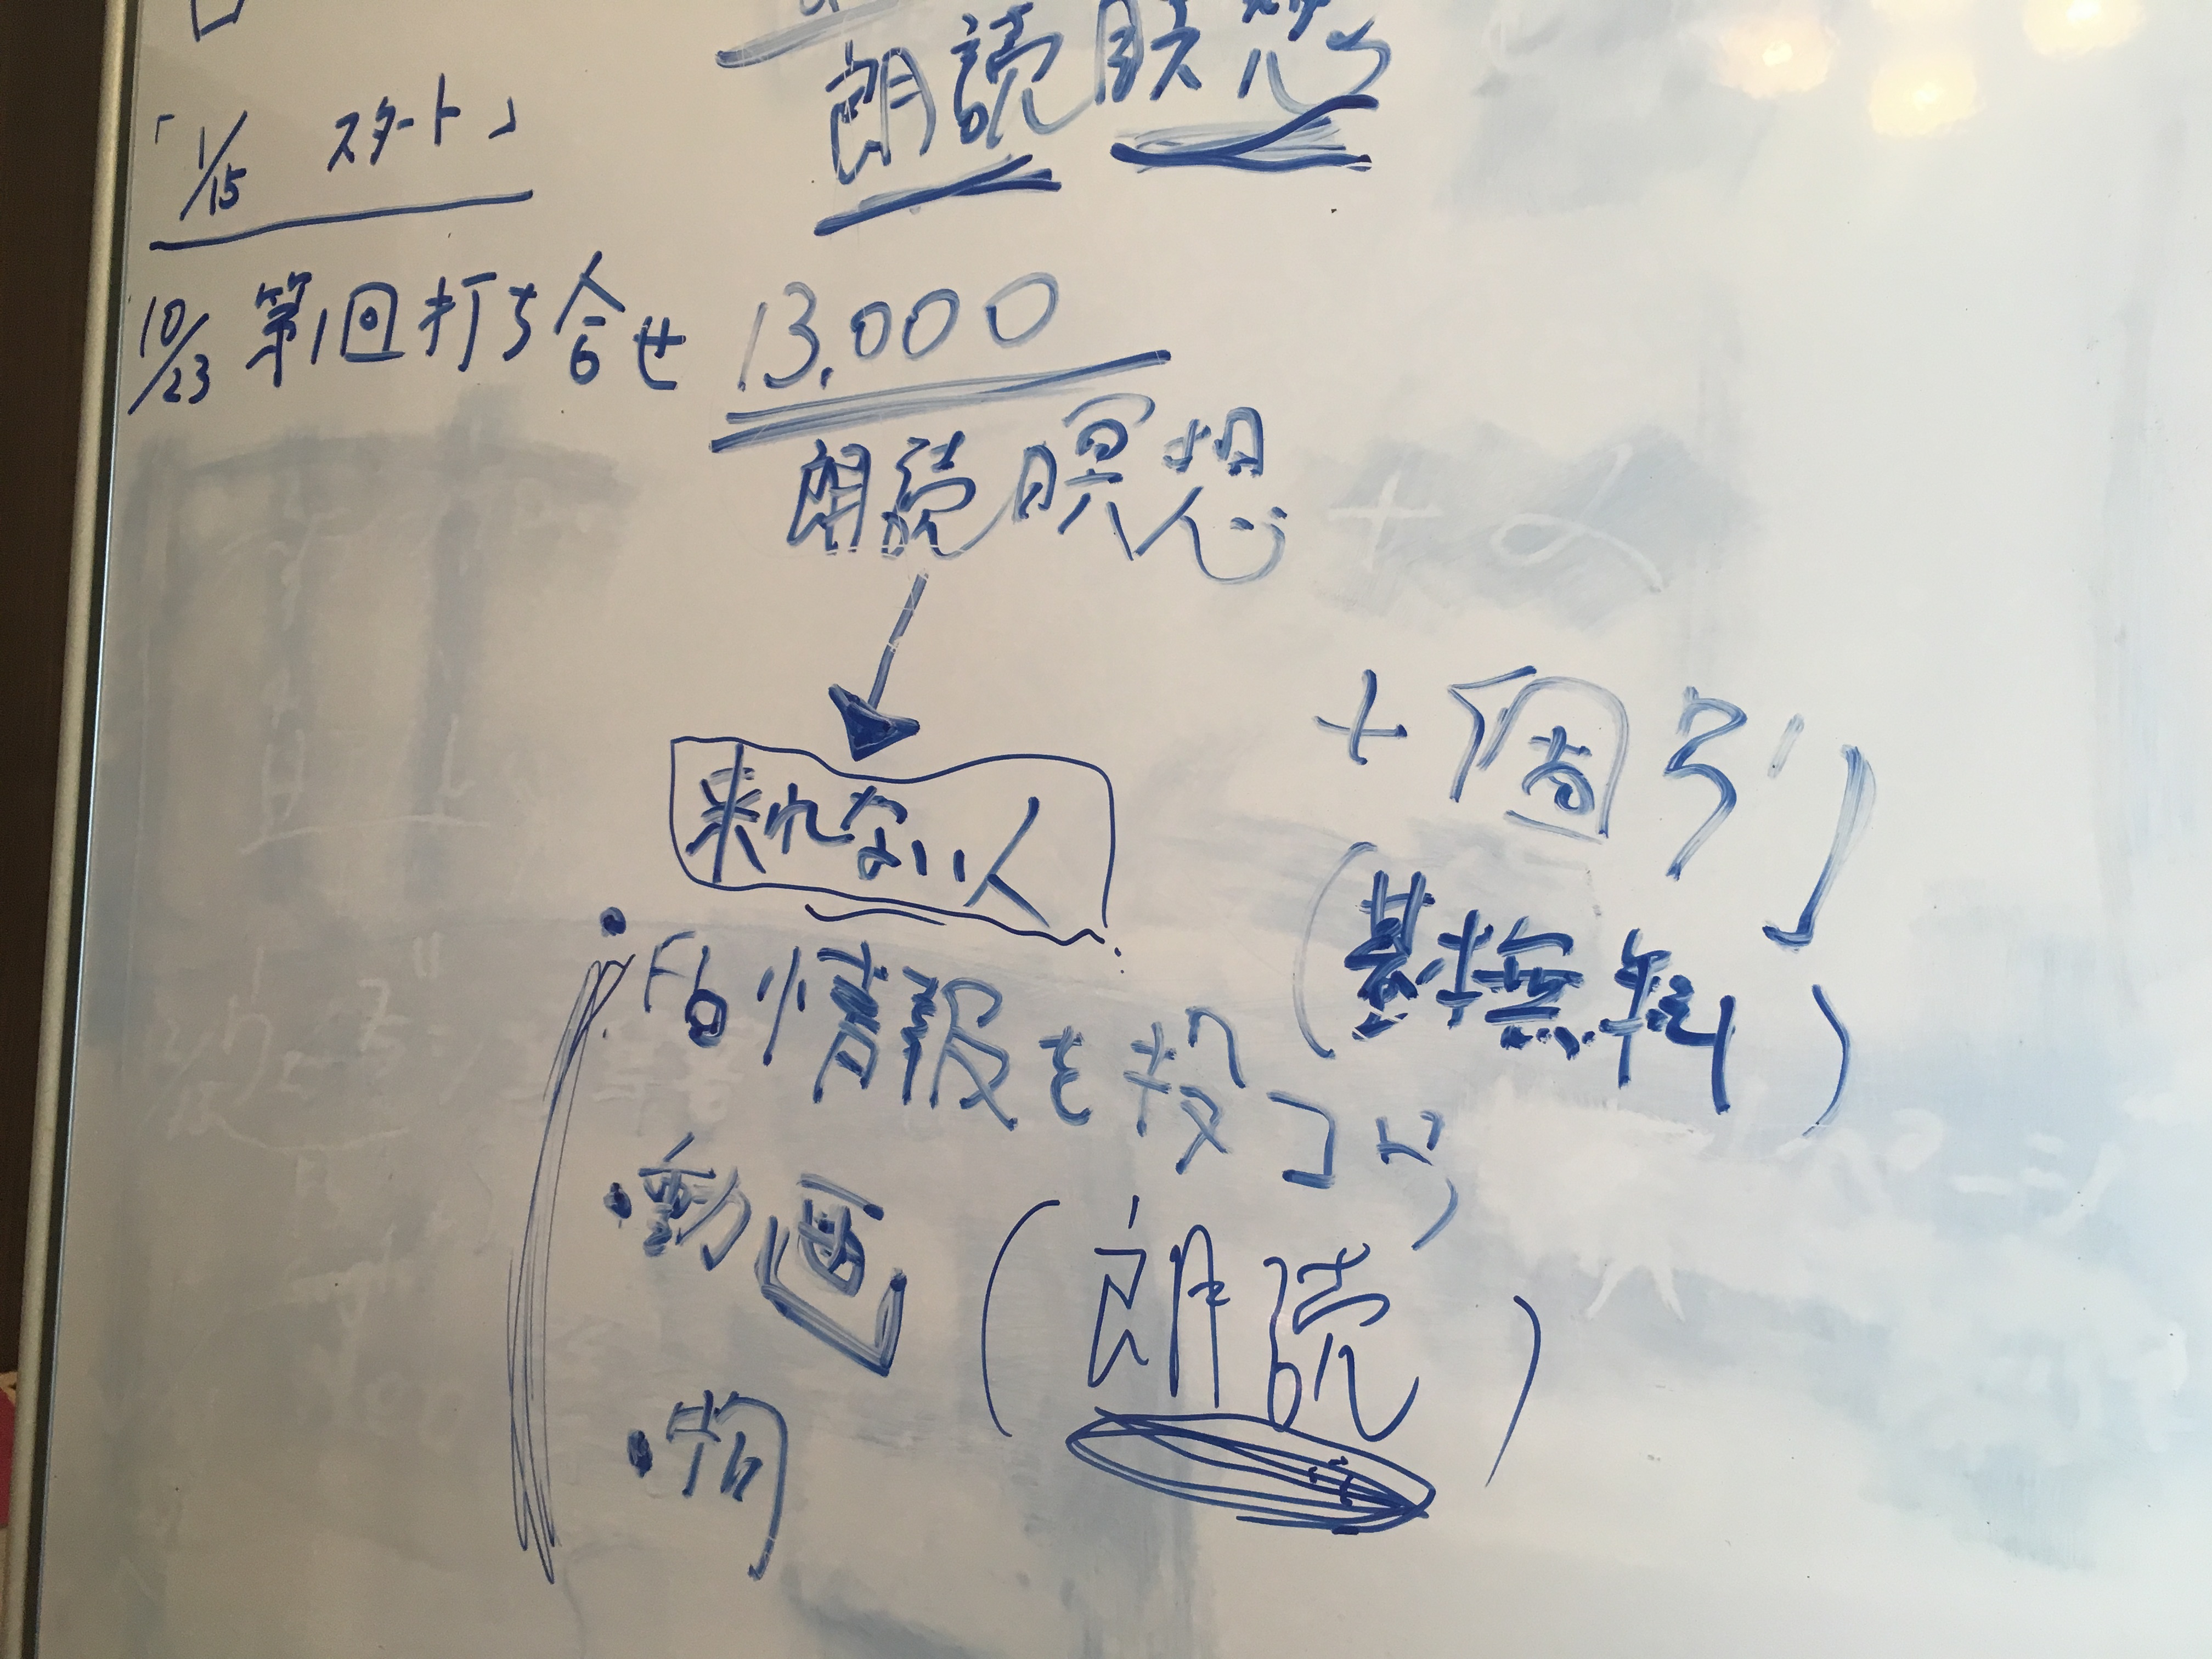 朗読瞑想
「1/15 スタート」
10/23 第1回打ち合せ
13,000
朗読瞑想
+α
来れない人
+個別
(基本無料)
・FB情報を投コウ
・動画
(朗読)